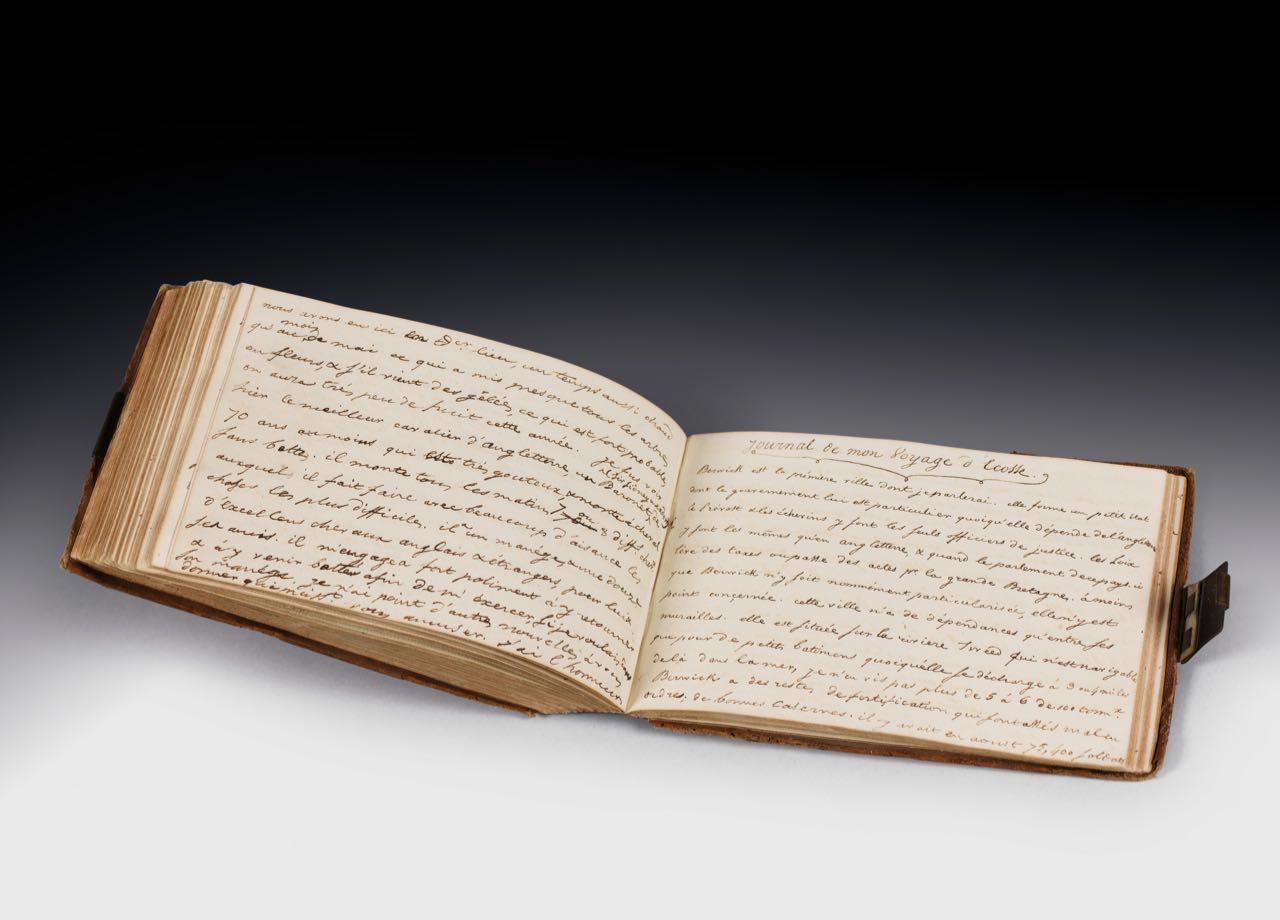 nous avons eu ici en der lieu, un temps aussi chaud
qu'au mois de mai ce qui a mis presque tous les arbres
en fleurs, & s'il vient des gélées, ce qui est fort probable,
on aura très peu de fruit cette année. je fus voir
hier le meilleur cavalier d'angleterre, un Baronet
70 ans au moins qui est très gouteux & monte à cheval
sans botte. il monte tous les matins 7 ou 8 diffts
auxquels il fait faire avec beaucoup d'aisance les
choses les plus difficile. il a un manège, & me donne
d'excellens chevaux anglais & étrangers, pour lui &
ses amis. il m'engagea fort poliment à y retourner
& à y venir botté afin de m'exercer, si je voulais, dans
son manège. je n'ai point d'autre nouvelle à vous
donner qui puisse vous amuser.
j'ai l'honneur
Journal de mon Voyage d'Ecosse.
Berwick est la prémière ville dont je parlerai. elle forme un petit état
dont le gouvernement lui est particulier quoiqu'elle dépende de l'angleterre
le Prévost & les échevins y sont les seuls officiers de justice. les loix
y sont les mêmes qu'en angleterre, & quand le parlement de ce pays-ci
lève des taxes ou passe des actes pr. la grande Bretagne, à moins
que Berwick n'y soit nommément particularisée, elle n'y est
point concernée. cette ville n'a de dépendances qu'entre ses
murailles. elle est située sur la rivière Tweed qui n'est navigable
que pour de petits batimens quoiqu'elle se décharge à 3 ou 4 miles
de là dans la mer, je n'en vis pas plus de 5 à 6 de 100 tonnx.
Berwick a des reste, de fortification qui sont assés mal en
ordres, de bonnes casernes. il y avoit en aoust 75, 400 soldats